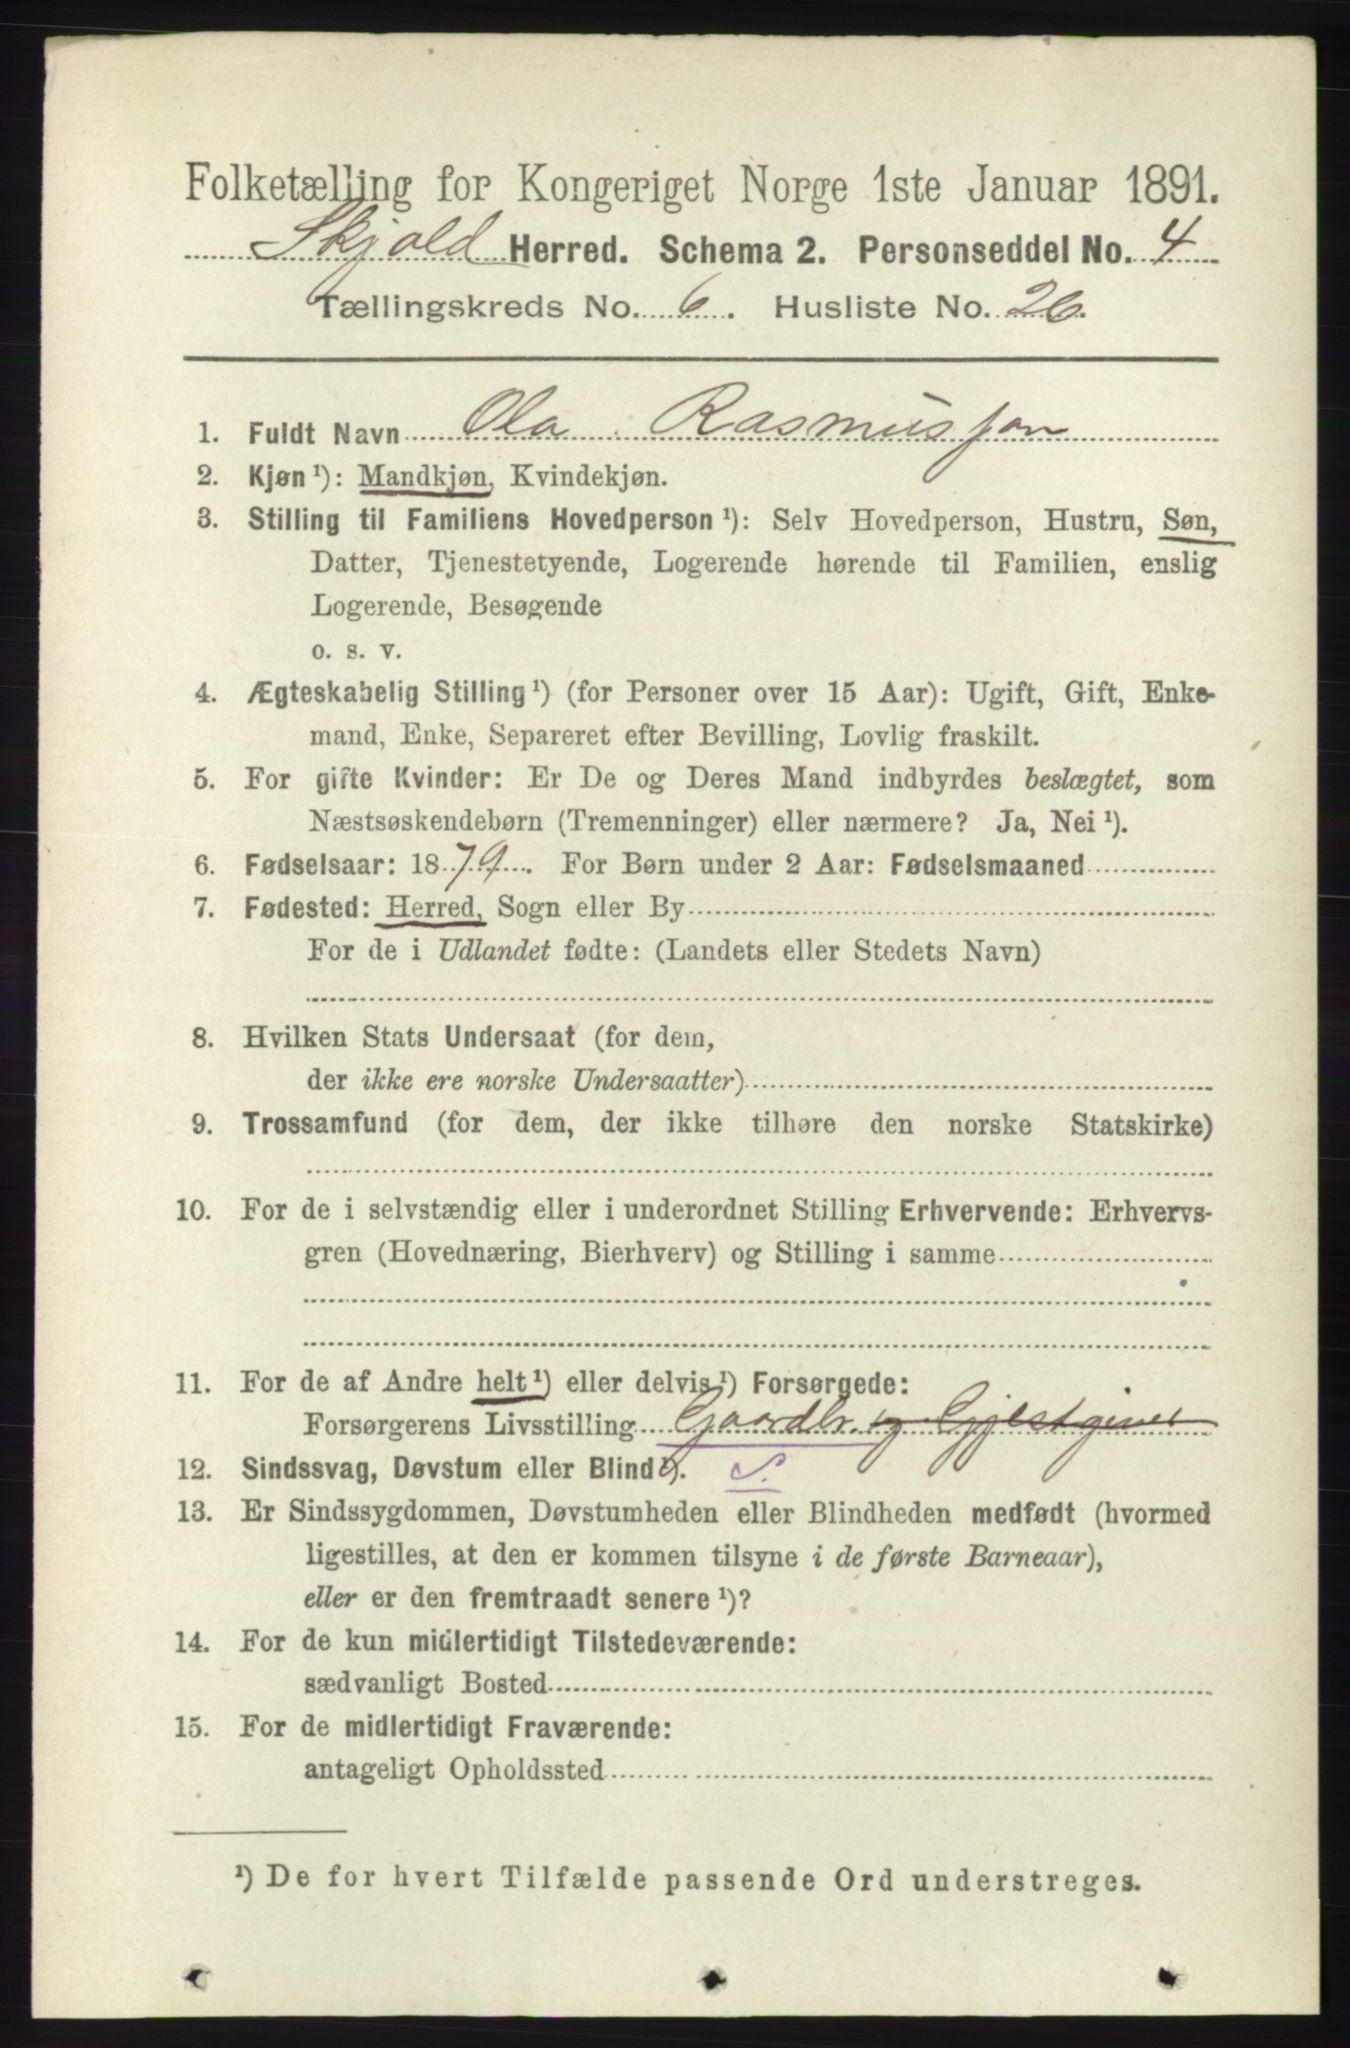 Folketælling for Kongeriget Norge 1ste Januar 1891.
Skjold Herred. Schema 2. Personseddel No. 4
Tællingskreds No. 6. Husliste No. 26.
1. Fuldt Navn Ola Rasmussen
2. Kjøn ¹): Mandkjøn, Kvindekjøn.
3. Stilling til Familiens Hovedperson ¹): Selv Hovedperson, Hustru, Søn,
Datter, Tjenestetyende, Logerende hørende til Familien, enslig
Logerende, Besøgende
o. s. v.
4. Ægteskabelig Stilling ¹) (for Personer over 15 Aar): Ugift, Gift, Enke-
mand, Enke, Separeret efter Bevilling, Lovlig fraskilt.
5. For gifte Kvinder: Er De og Deres Mand indbyrdes beslægtet, som
Næstsøskendebørn (Tremenninger) eller nærmere? Ja, Nei ¹).
6. Fødselsaar: 1879. For Børn under 2 Aar: Fødselsmaaned
7. Fødested: Herred, Sogn eller By
For de i Udlandet fødte: (Landets eller Stedets Navn)
8. Hvilken Stats Undersaat (for dem,
der ikke ere norske Undersaatter)
9. Trossamfund (for dem, der ikke tilhøre den norske Statskirke)
10. For de i selvstændig eller i underordnet Stilling Erhvervende: Erhvervs-
gren (Hovednæring, Bierhverv) og Stilling i samme
11. For de af Andre helt ¹) eller delvis ¹) Forsørgede:
Forsørgerens Livsstilling Gaardbr. og Gjestgiver
12. Sindssvag, Døvstum eller Blind ¹). S.
13. Er Sindssygdommen, Døvstumheden eller Blindheden medfødt (hvormed
ligestilles, at den er kommen tilsyne i de første Barneaar),
eller er den fremtraadt senere ¹)?
14. For de kun midlertidigt Tilstedeværende:
sædvanligt Bosted
15. For de midlertidigt Fraværende:
antageligt Opholdssted
¹) De for hvert Tilfælde passende Ord understreges.